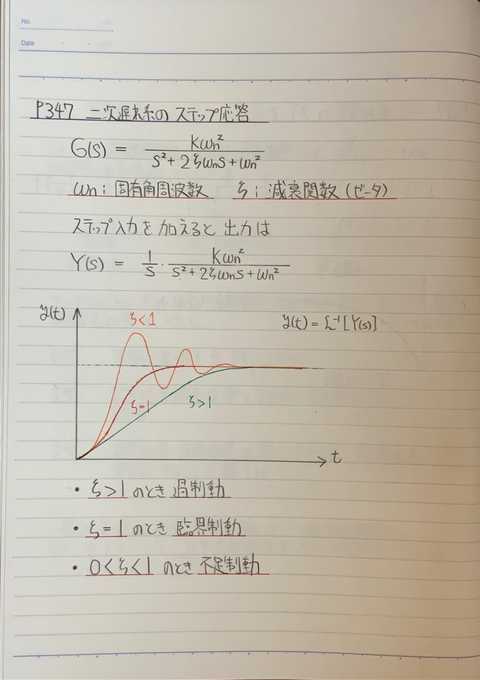 No.
Date
P347 二次遅れ系のステップ応答
G(s) = Kωn² / (s² + 2ζωns + ωn²)
ωn : 固有角周波数 ζ : 減衰関数 (ゼータ)
ステップ入力を加えると出力は
Y(s) = 1/s · Kωn² / (s² + 2ζωns + ωn²)
y(t) ζ<1 y(t) = ℒ⁻¹[Y(s)]
ζ=1 ζ>1
t
・ζ>1 のとき 過制動
・ζ=1 のとき 臨界制動
・0<ζ<1 のとき 不足制動